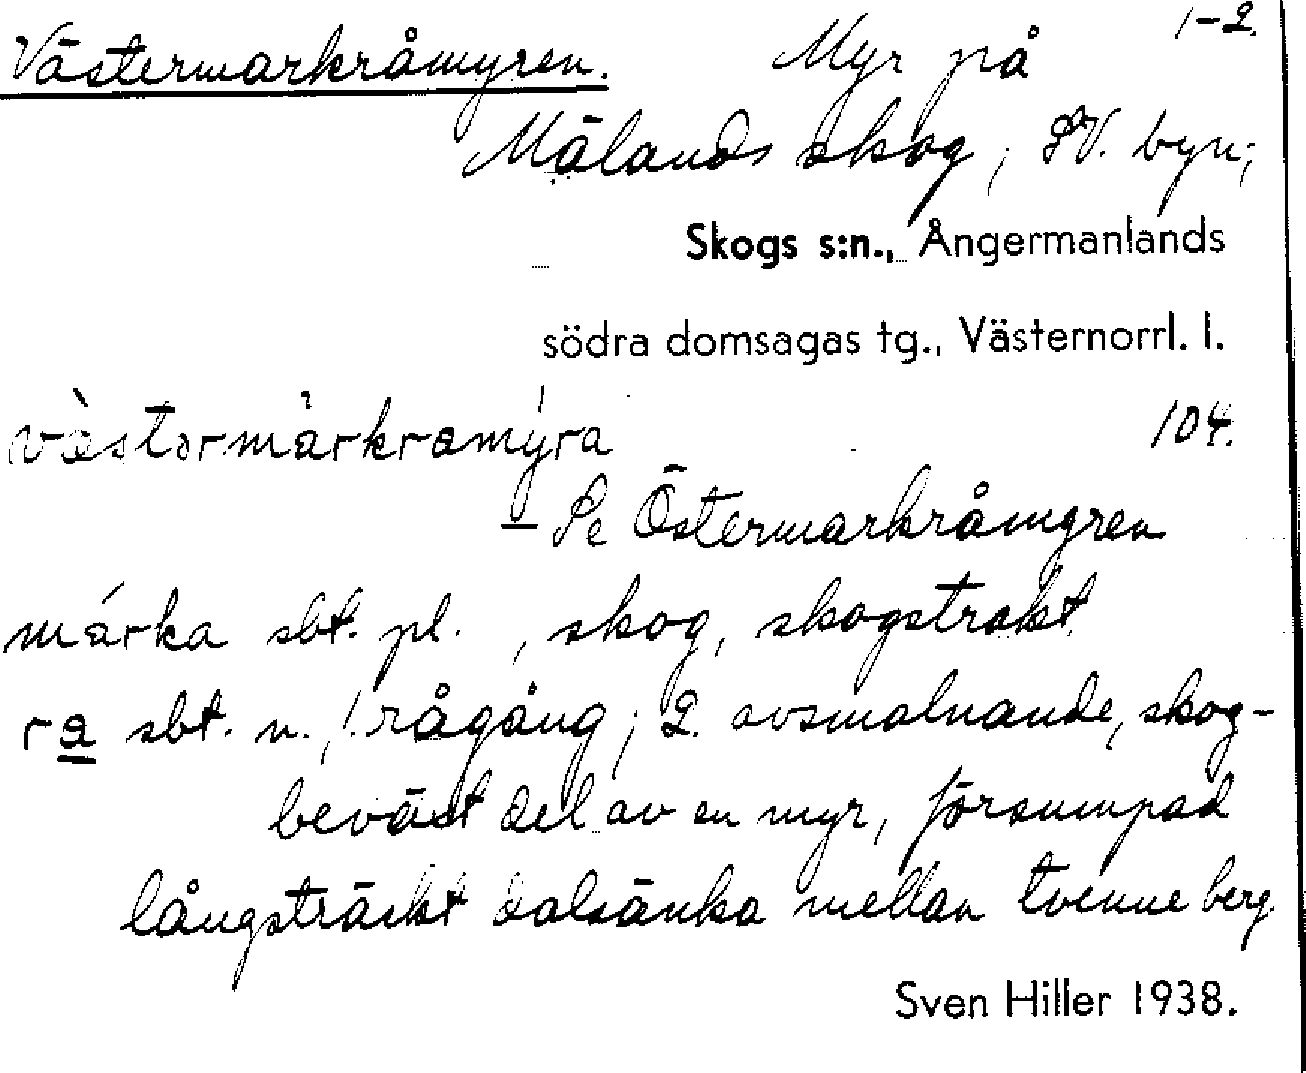 1-2.
Västermarkråmyren. Myr på
Mälands skog, SV. byn;
Skogs s:n., Ångermanlands
södra domsagas tg., Västernorrl. l.
vàstərmàrkramýra 104.
– Se Östermarkråmyren
márka sbt. pl. , skog, skogstrakt
ra sbt. n., 1. rågång; 2. avsmalnande, skog-
beväxt del av en myr, försumpad
långsträckt dalsänka mellan tvenne berg.
Sven Hiller 1938.